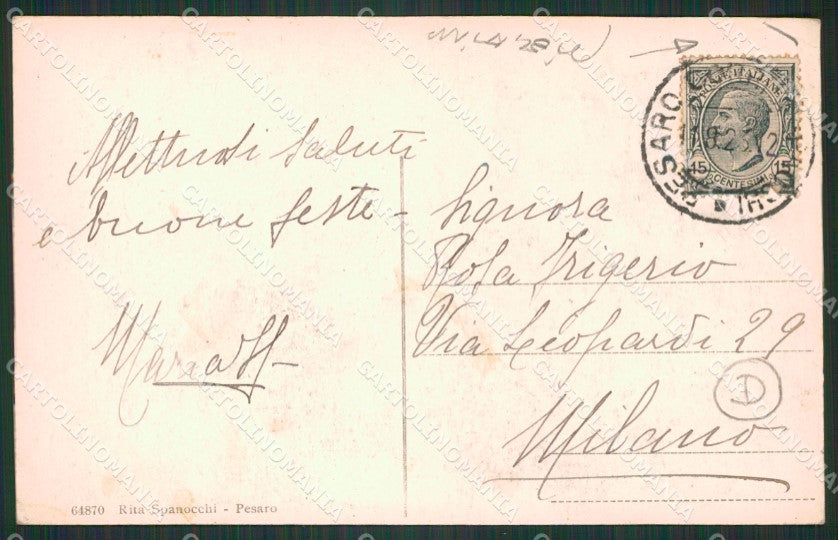 Affettuosi saluti
e buone feste -
Maria
Signora
Rosa Frigerio
Via Leopardi 29
Milano
D
POSTE ITALIANE
15 15
CENTESIMI
PESARO
64870 Rita Spanocchi - Pesaro
CARTOLINOMANIA